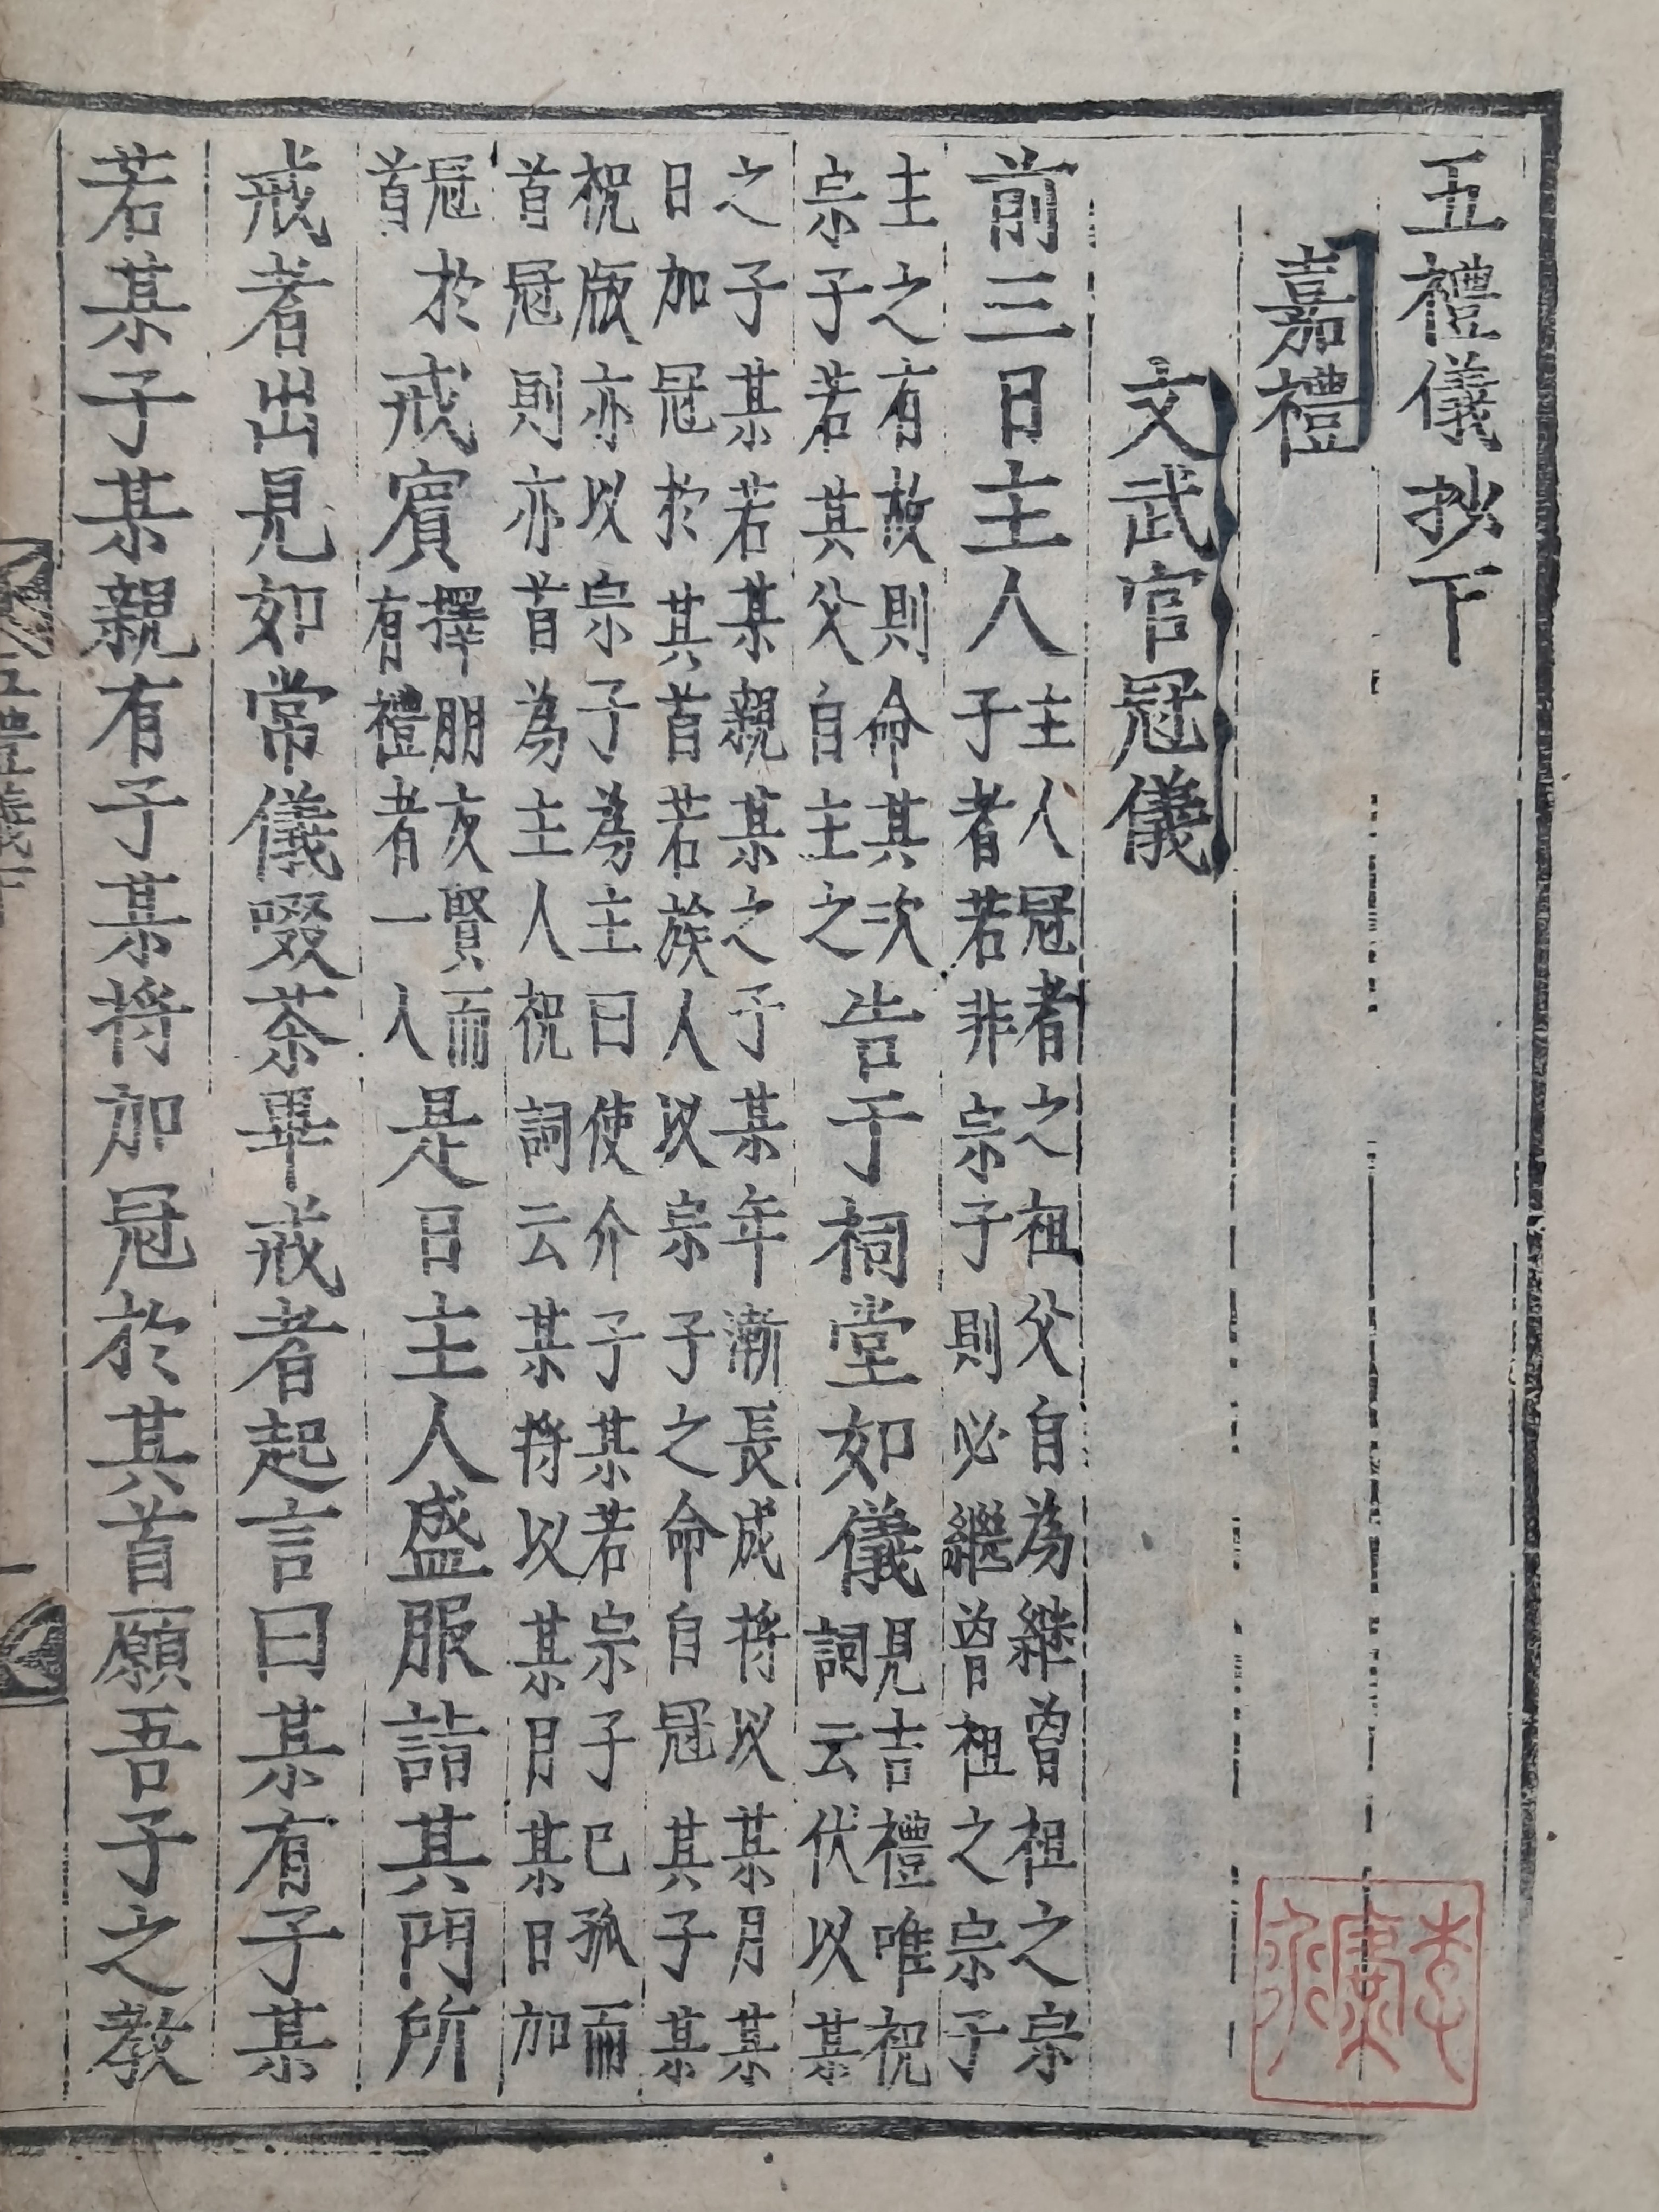 五禮儀抄下
嘉禮
文武官冠儀
前三日主人主人冠者之祖父自為繼曾祖之宗子者若非宗子則必繼曾祖之宗子
主之有故則命其次宗子若其父自主之告于祠堂如儀見吉禮唯祝詞云伏以某
之子某若某親某之子某年漸長成將以某月某日加冠於其首若族人以宗子之命自冠其子某
祝版亦以宗子為主曰使介子某若宗子已孤而首冠則亦首為主人祝詞云某將以某月某日加
冠於首戒賓擇朋友賢而有禮者一人是日主人盛服詣其門所
戒者出見如常儀啜茶畢戒者起言曰某有子某
若某子某親有子某將加冠於其首願吾子之教
五禮儀下
一